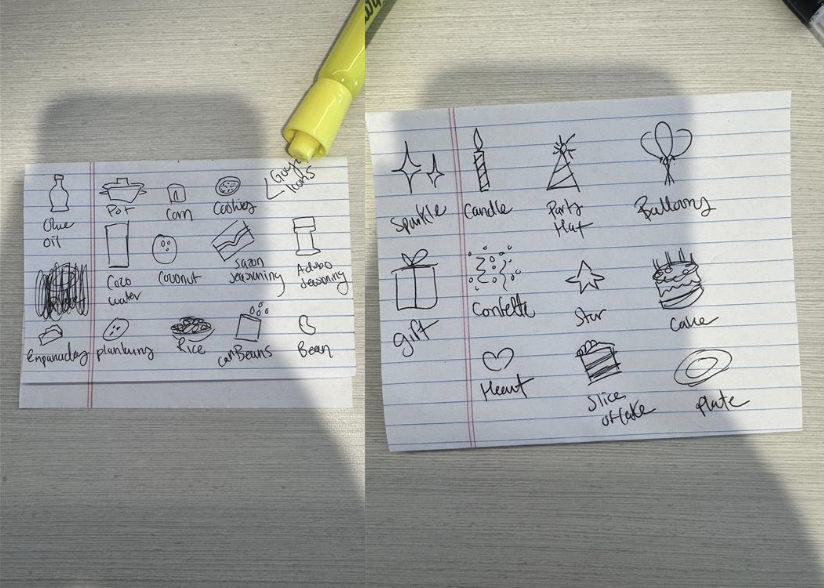 Goya
Icons
Olive
oil
Pot
Corn
Cookies
Coco
water
Coconut
Sazon
Seasoning
Adobo
Seasoning
Empanadas
Rice
can Beans
Bean
Sparkle
Candle
Party
Hat
Balloons
gift
Confette
Star
Cake
Heart
Slice
of Cake
Plate